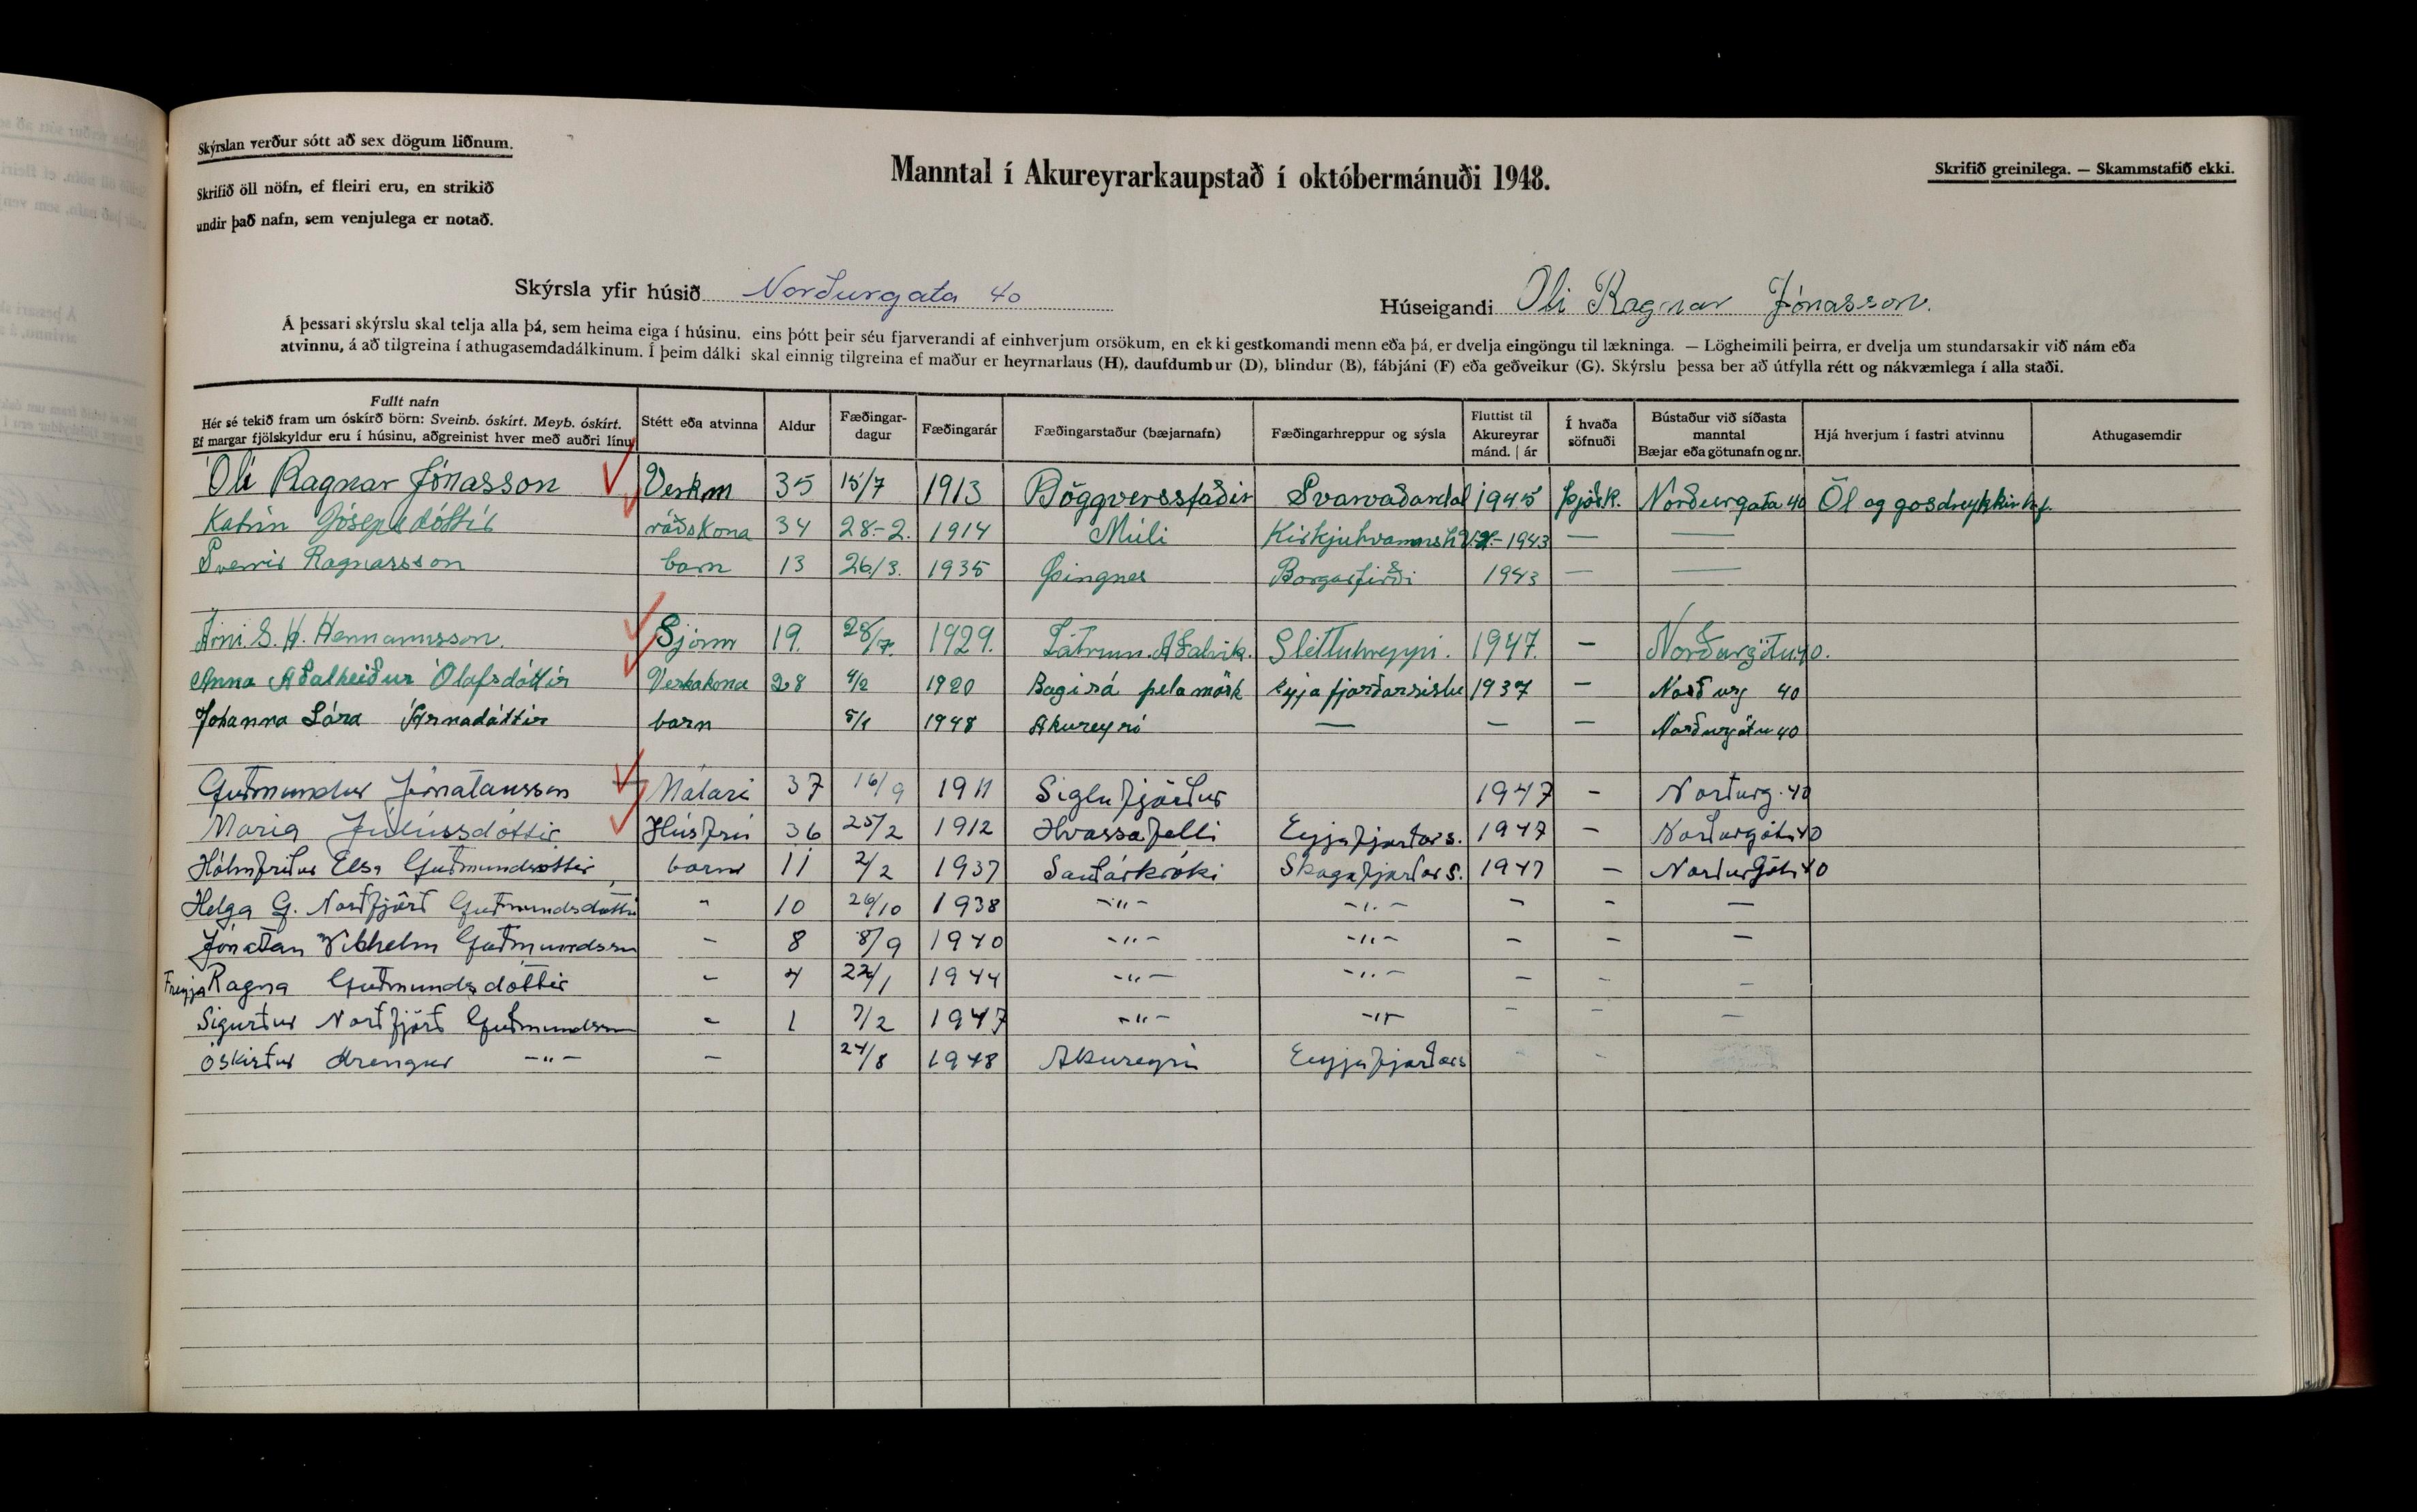 Skýrslan verður sótt að sex dögum liðnum.
Skrifið öll nöfn, ef fleiri eru, en strikið
undir það nafn, sem venjulega er notað.
Manntal í Akureyrarkaupstað í októbermánuði 1948.
Skrifið greinilega. — Skammstafið ekki.
Skýrsla yfir húsið Norðurgata 40
Húseigandi Óli Ragnar Jónasson.
Á þessari skýrslu skal telja alla þá, sem heima eiga í húsinu, eins þótt þeir séu fjarverandi af einhverjum orsökum, en ekki gestkomandi menn eða þá, er dvelja eingöngu til lækninga. — Lögheimili þeirra, er dvelja um stundarsakir við nám eða
atvinnu, á að tilgreina í athugasemdadálkinum. Í þeim dálki skal einnig tilgreina ef maður er heyrnarlaus (H), daufdumbur (D), blindur (B), fábjáni (F) eða geðveikur (G). Skýrslu þessa ber að útfylla rétt og nákvæmlega í alla staði.
Fullt nafn
Hér sé tekið fram um óskírð börn: Sveinb. óskírt. Meyb. óskírt.
Ef margar fjölskyldur eru í húsinu, aðgreinist hver með auðri línu
Stétt eða atvinna
Aldur
Fæðingar-
dagur
Fæðingarár
Fæðingarstaður (bæjarnafn)
Fæðingarhreppur og sýsla
Fluttist til
Akureyrar
mánd. | ár
Í hvaða
söfnuði
Bústaður við síðasta
manntal
Bæjar eða götunafn og nr.
Hjá hverjum í fastri atvinnu
Athugasemdir
Óli Ragnar Jónasson Verkm 35 15/7 1913 Böggversstaðir Svarvaðardal 1945 Þjóðk. Norðurgata 40 Öl og gosdrykkir h.f.
Katrín Jósepsdóttir ráðskona 34 28-2. 1914 Múli Kirkjuhvammsh 1943 — —
Sverrir Ragnarsson barn 13 26/3. 1935 Þingnes Borgarfirði 1943 — —
Árni S. H. Hermannsson. Sjóm 19. 28/7. 1929. Látrum. Aðalvik. Sléttuhreppi. 1947. — Norðurgötu 40.
Anna Aðalheiður Ólafsdóttir Verkakona 28 4/2 1920 Bagisá þelamörk Eyjafjarðarsislu 1937 — Norðurg 40
Jóhanna Lára Árnadóttir barn 5/1 1948 Akureyri — — — Norðurgötu 40
Guðmundur Jónatansson Málari 37 16/9 1911 Siglufjörður 1947 - Norðurg. 40
Maria Júlíusdóttir Húsfrú 36 25/2 1912 Hvassafelli Eyjafjarðars. 1947 - Norðurgötu 40
Hólmfríður Elsa Guðmundsdottir barn 11 2/2 1937 Sauðárkróki Skagafjarðar S. 1947 - Norðurgötu 40
Helga G. Norðfjörð Guðmundsdóttir " 10 26/10 1938 -"- -"- - - —
Jónatan Vilhelm Guðmundsson - 8 8/9 1940 -"- -"- - - —
Freyja Ragna Guðmundsdóttir - 4 22/1 1944 -"- -"- - - -
Sigurður Norðfjörð Guðmundsson - 1 7/2 1947 -"- -"- - - -
Óskirður drengur -"- - 24/8 1948 Akureyri Eyjafjarðars - -